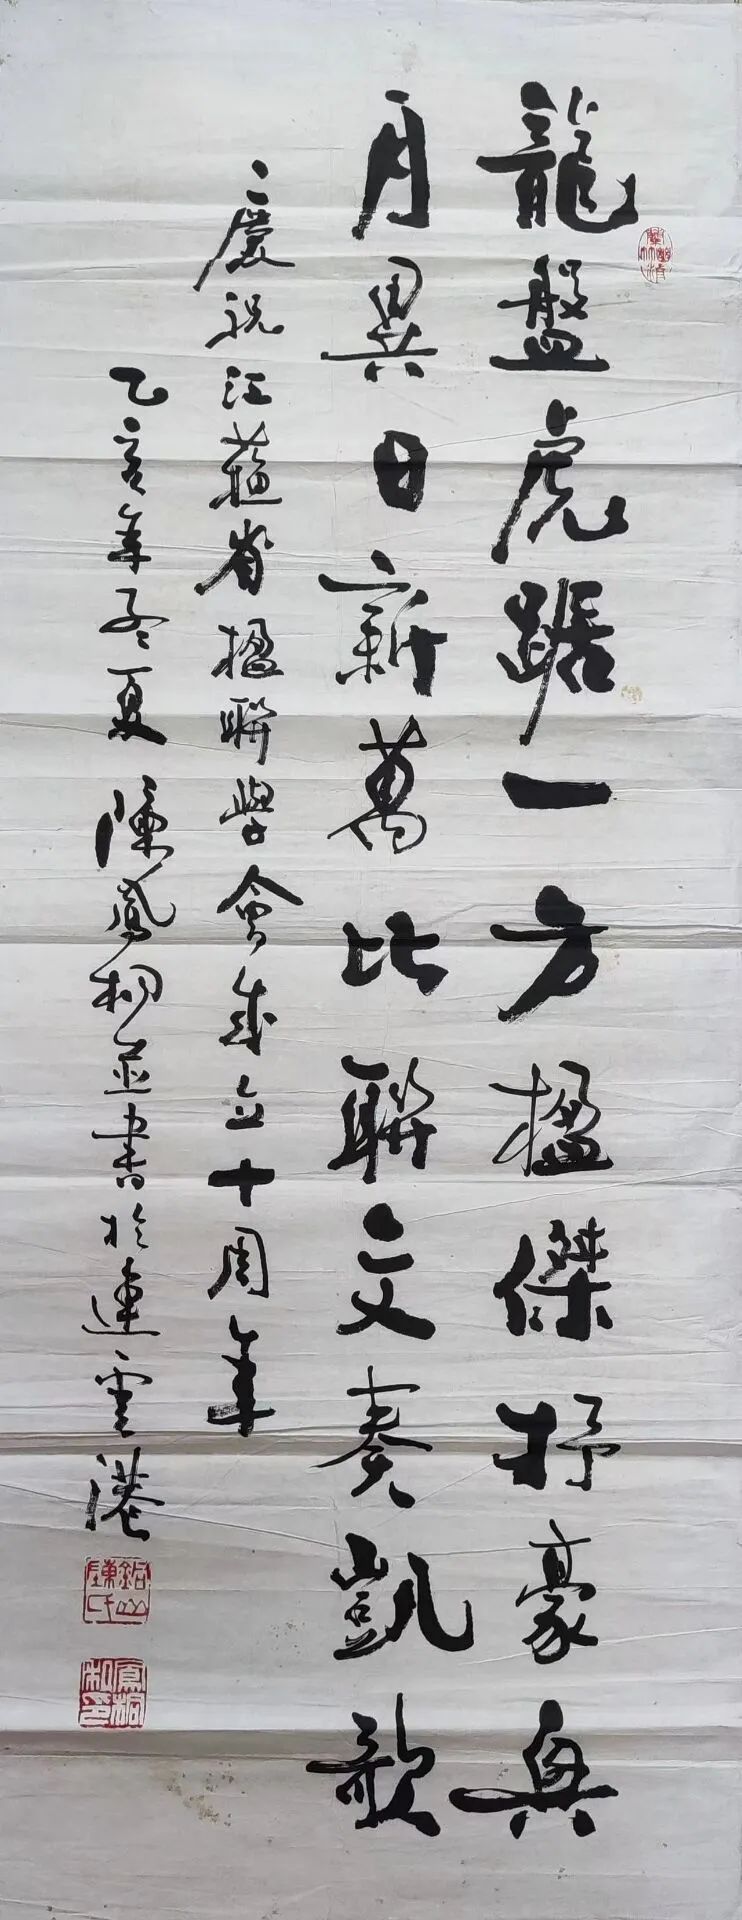 龍盤虎踞一方楹傑抒豪興
月異日新萬比聯文奏凱歌
慶祝江蘇省楹聯學會成立十周年
乙亥年孟夏陳鳳桐並書於連雲港
銅山陳氏
鳳桐私印